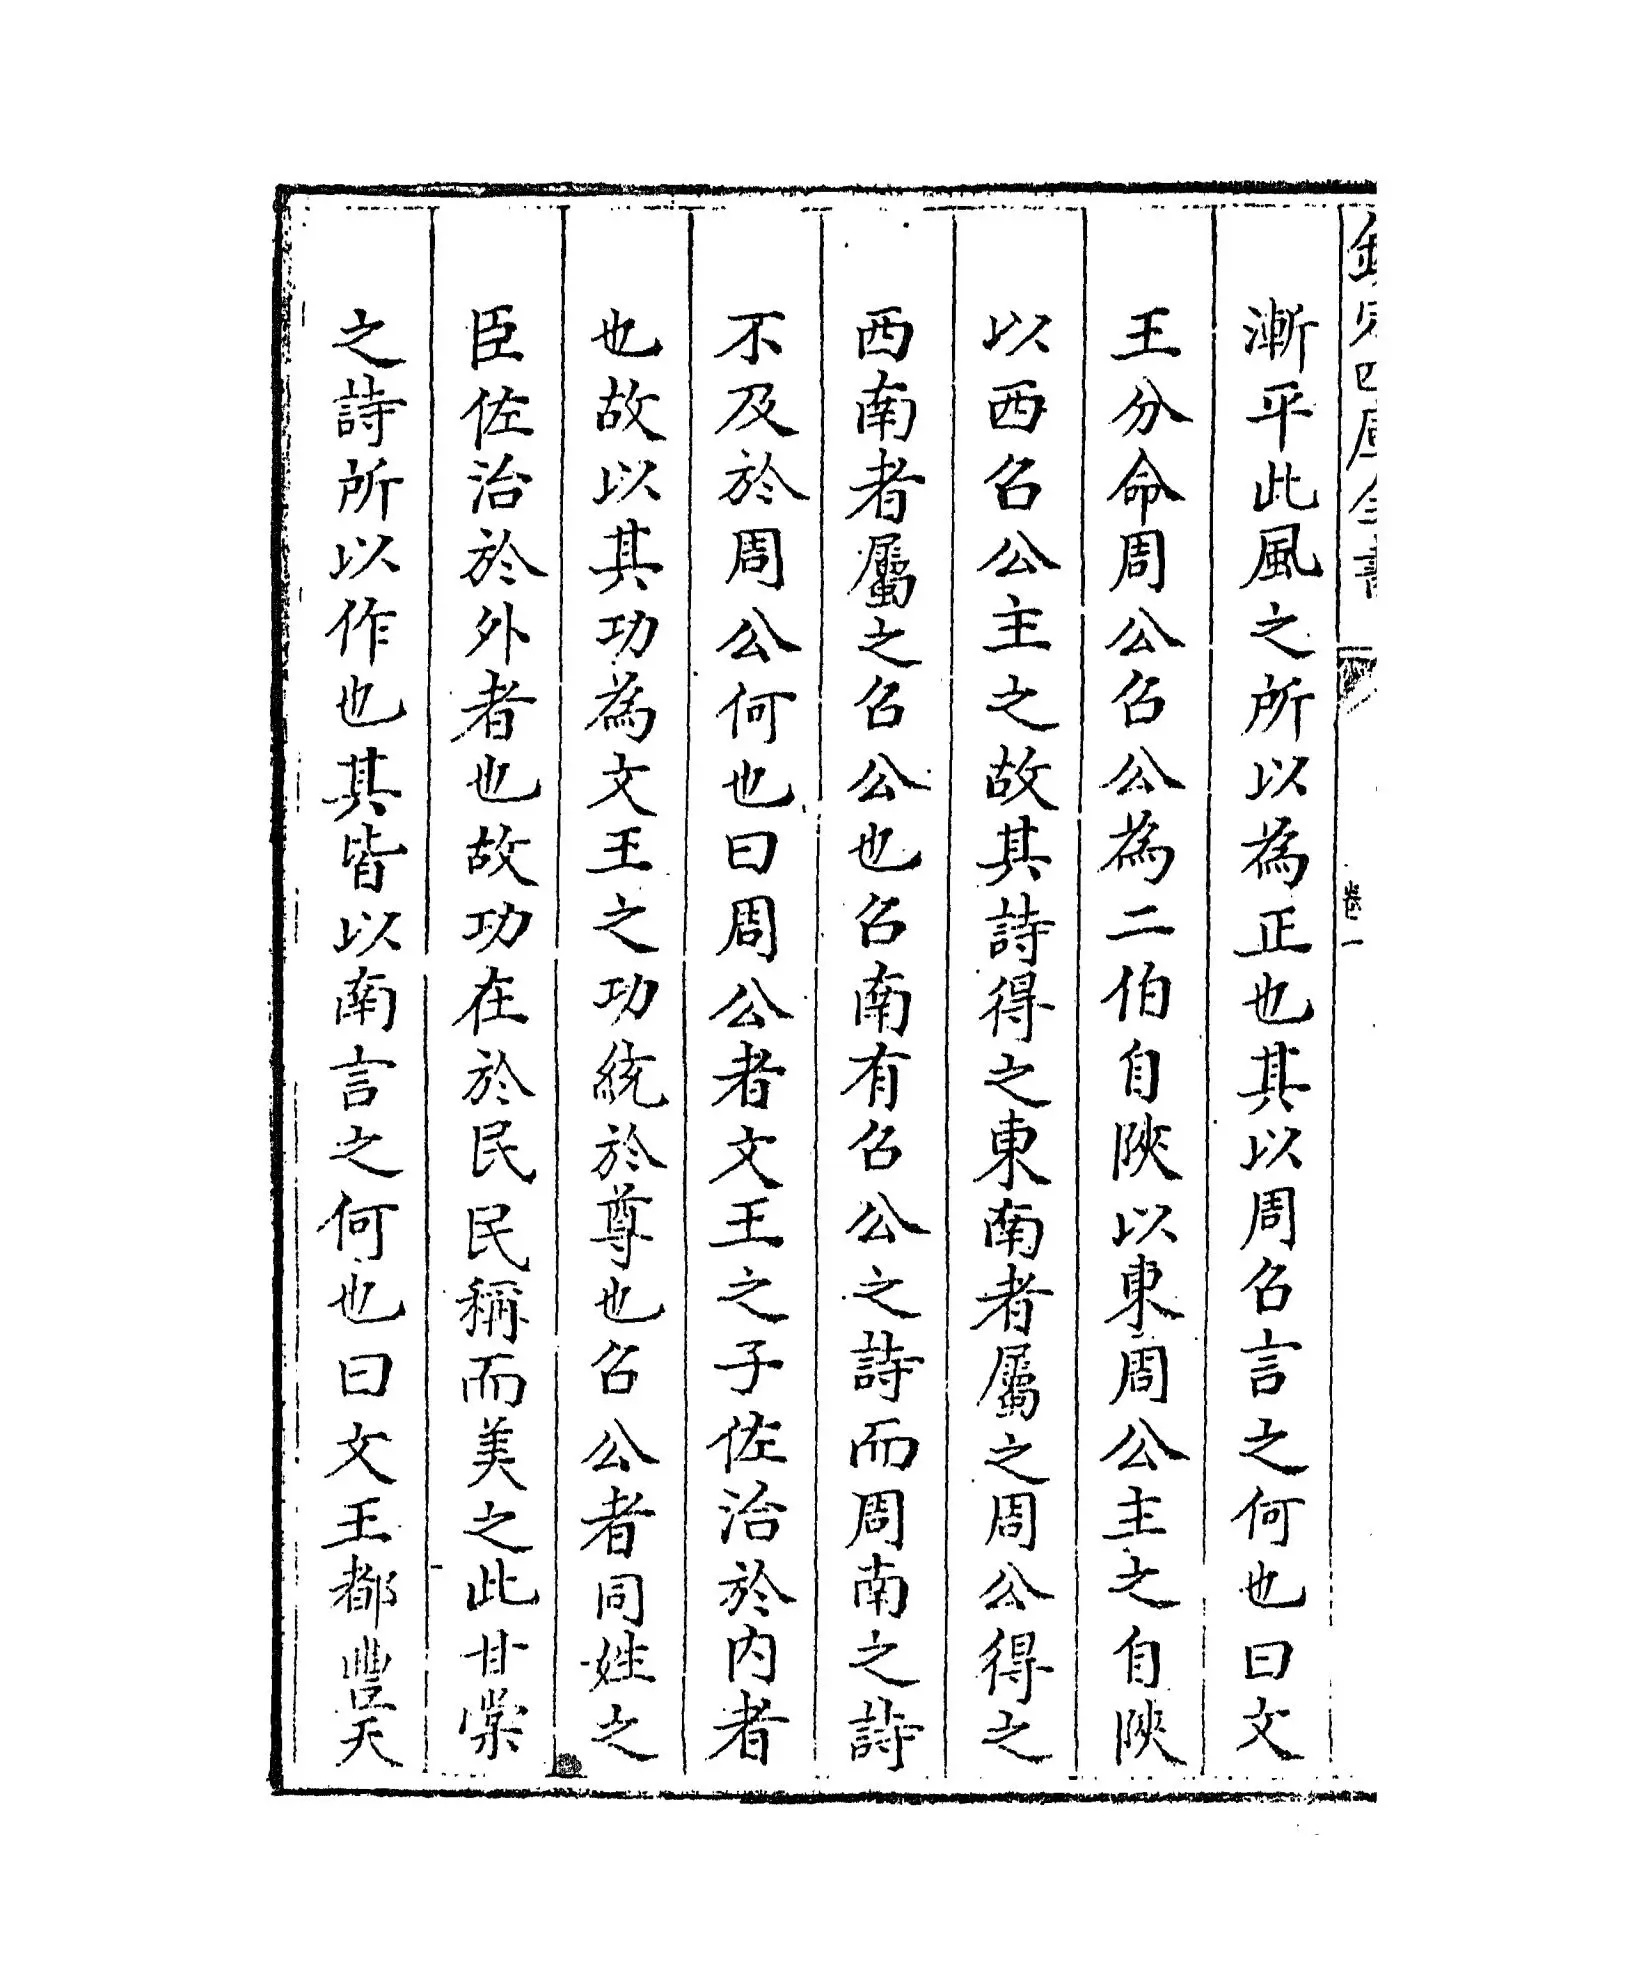 欽定四庫全書
卷一
漸平此風之所以為正也其以周召言之何也曰文
王分命周公召公為二伯自陜以東周公主之自陜
以西召公主之故其詩得之東南者屬之周公得之
西南者屬之召公也召南有召公之詩而周南之詩
不及於周公何也曰周公者文王之子佐治於内者
也故以其功為文王之功統於尊也召公者同姓之
臣佐治於外者也故功在於民民稱而美之此甘棠
之詩所以作也其皆以南言之何也曰文王都豐天